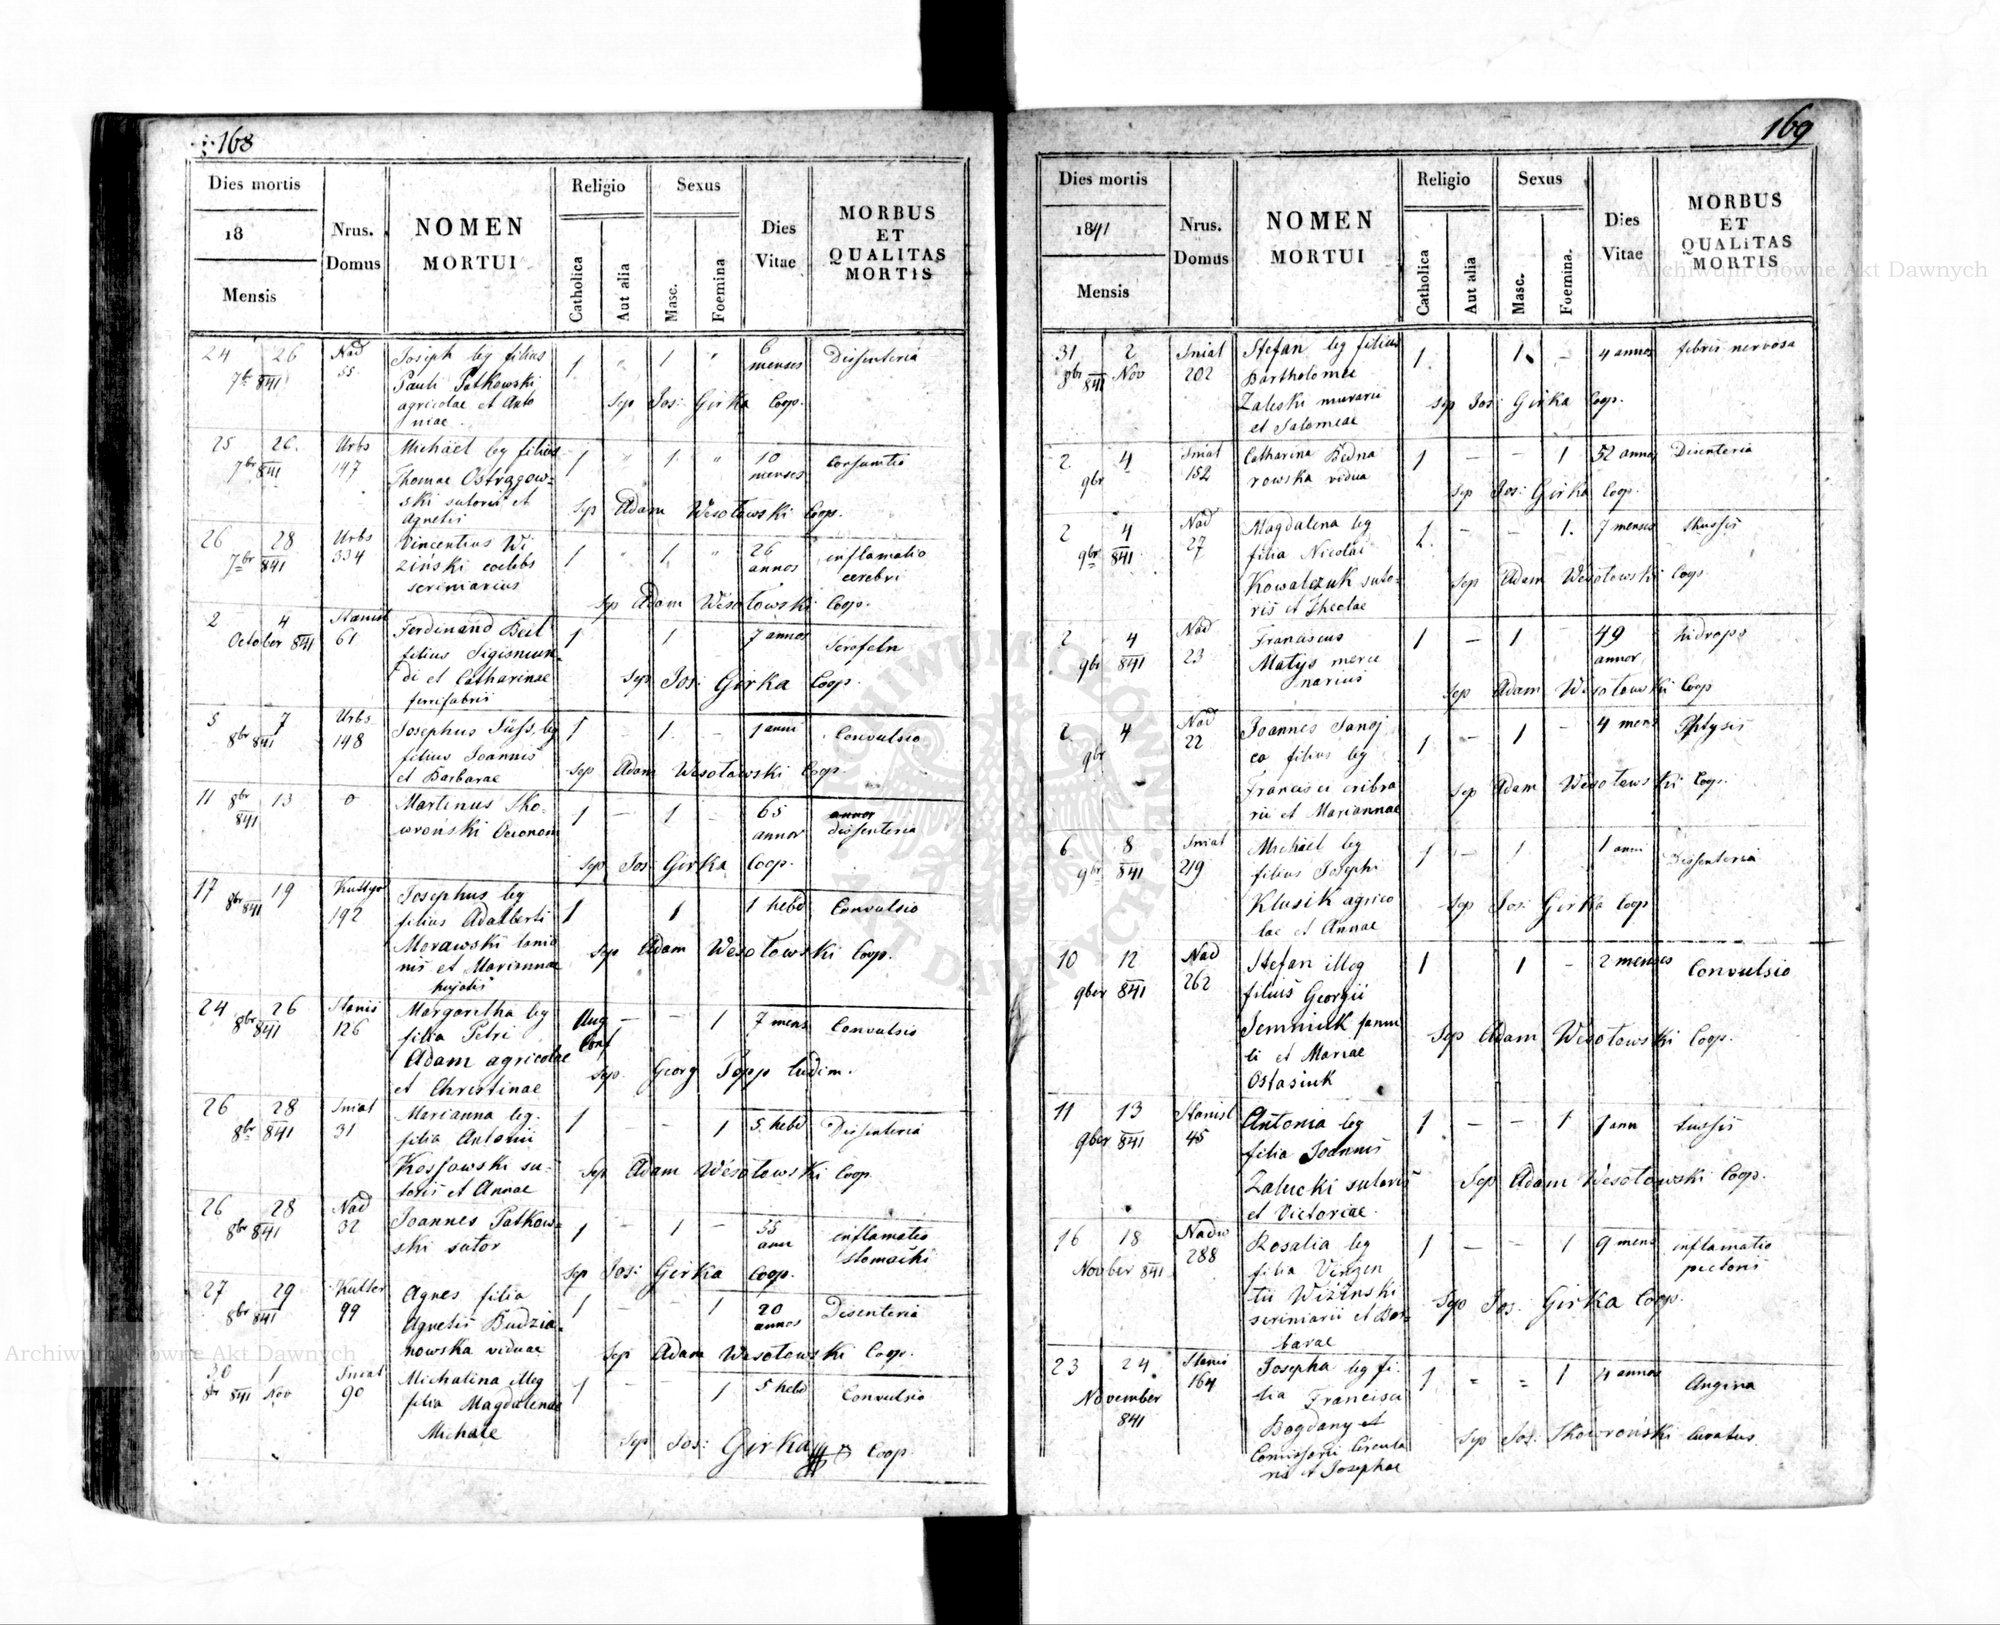 168
Dies mortis
18
Mensis
Nrus.
Domus
NOMEN
MORTUI
Religio
Catholica
Aut alia
Sexus
Masc.
Foemina
Dies
Vitae
MORBUS
ET
QUALITAS
MORTIS
24 26 Nad Joseph leg filius 1 " 1 " 6 Dissenteria
7br 841 55 Pauli Patkowski menses
agricolae et Anto Sep Jos: Girka Coop.
niae
25 26 Urbs Michael leg filius 1 " 1 " 10 Consumtio
7br 841 147 Thomae Ostrągow- menses
ski sutoris et Sep Adam Wesołowski Coop.
Agnetis
26 28 Urbs Vincentius Wi 1 " 1 " 26 inflamatio
7br 841 334 zinski coelebs annos cerebri
scriniarius Sep Adam Wesołowski Coop.
2 4 Stanisl Ferdinand Beil 1 1 7 annor Scrofeln
October 841 61 filius Sigismun-
di et Catharinae Sep Jos: Girka Coop.
ferrifabris
5 7 Urbs Josephus Süss, leg 1 - 1 - 1 anni Convulsio
8br 841 148 filius Joannis
et Barbarae Sep Adam Wesołowski Coop.
11 8br 13 0 Martinus Sko- 1 - 1 - 65 annor
841 wroński Oeconom annor dissenteria
Sep Jos: Girka Coop.
17 8br 841 19 Josephus leg 1 1 1 hebd Convulsio
192 filius Adalberti
Morawski lanio Sep Adam Wesołowski Coop.
nis et Mariannae
24 26 Stanis Margaretha leg Aug - - 1 7 mens Convulsio
8br 841 126 filia Petri Conf
Adam agricolae
et Christinae Sep. Georg Popp ludim.
26 28 Sniat Marianna leg. 1 - - 1 5 hebd Dissenteria
8br 841 31 filia Antonii
Kossowski su- Sep Adam Wesołowski Coop.
toris et Annae
26 28 Nad Joannes Patkow- 1 - 1 - 55 inflamatio
8br 841 32 ski sutor annor stomachi
Sep Jos: Girka Coop.
27 29 Agnes filia 1 - - 1 20 Disenteria
8br 841 99 Agnetis Budzia- annos
nowska viduae Sep Adam Wesołowski Coop.
30 1 Sniat Michalina illeg 1 - - 1 5 hebd Convulsio
8br 841 Nov 90 filia Magdalenae
Michale Sep Jos: Girka Coop
169
Dies mortis
1841
Mensis
Nrus.
Domus
NOMEN
MORTUI
Religio
Catholica
Aut alia
Sexus
Masc.
Foemina.
Dies
Vitae
MORBUS
ET
QUALITAS
MORTIS
31 2 Sniat Stefan leg filius 1 1 - 4 annos febris nervosa
8br 841 Nov 202 Bartholomei
Zaleski murarii Sep Jos: Girka Coop.
et Salomeae
2 4 Sniat Catharina Bedna 1 - - 1 52 annos Disenteria
9br 152 rowska vidua
Sep Jos: Girka Coop.
2 4 Nad Magdalena leg 1 - - 1. 7 menses thussis
9br 841 27 filia Nicolai
Kowalczuk suto- Sep Adam Wesołowski Coop.
ris et Theclae
2 4 Nad Franciscus 1 - 1 - 49 hidrops
9br 841 23 Matys merce annor
narius Sep Adam Wesołowski Coop
2 4 Nad Joannes Sanoj 1 - 1 - 4 mens Phtysis
9br 22 ca filius leg
Francisci cribra Sep Adam Wesołowski Coop.
rii et Mariannae
6 8 Sniat Michael leg 1 - 1 1 anni Dissenteria
9br 841 219 filius Josephi
Klusik agrico Sep Jos: Girka Coop
lae et Annae
10 12 Nad Stefan illeg 1 1 - 2 menses Convulsio
9ber 841 262 filius Georgii
Semniuk famu Sep Adam Wesołowski Coop.
li et Mariae
Ostasiuk
11 13 Stanisl Antonia leg 1 - - 1 1 ann tussis
9ber 841 45 filia Joannis
Załucki sutoris Sep Adam Wesołowski Coop.
et Victoriae.
16 18 Nadw Rosalia leg 1 - - 1 9 mens inflamatio
November 841 288 filia Vinzen pectoris
tii Wiżinski Sep Jos: Girka Coop.
scriniarii et Bar-
barae
23 24 Stanis Josepha leg fi- 1 = = 1 4 annos Angina
November 164 lia Francisci
841 Bogdany et
Comissarii Circula Sep Jos: Skowroński Curatus
ris et Josephae
Archiwum Główne Akt Dawnych
Archiwum Główne Akt Dawnych
ARCHIWUM GŁÓWNE AKT DAWNYCH